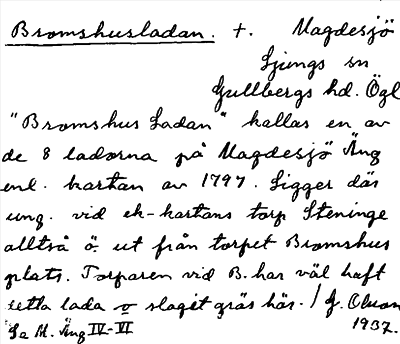 Bromshusladan. +. Magdesjö
Ljungs sn
Gullbergs hd. Ögl
"Bromshus Ladan" kallas en av
de 8 ladorna på Magdesjö Äng
enl. kartan av 1797. Ligger där
ung. vid ek-kartans torp Steninge
alltså ö. ut från torpet Bromshus
plats. Torparen vid B. har väl haft
detta lada o slaget gräs här. / G. Olsson
Se M. Äng IV-VI 1937.